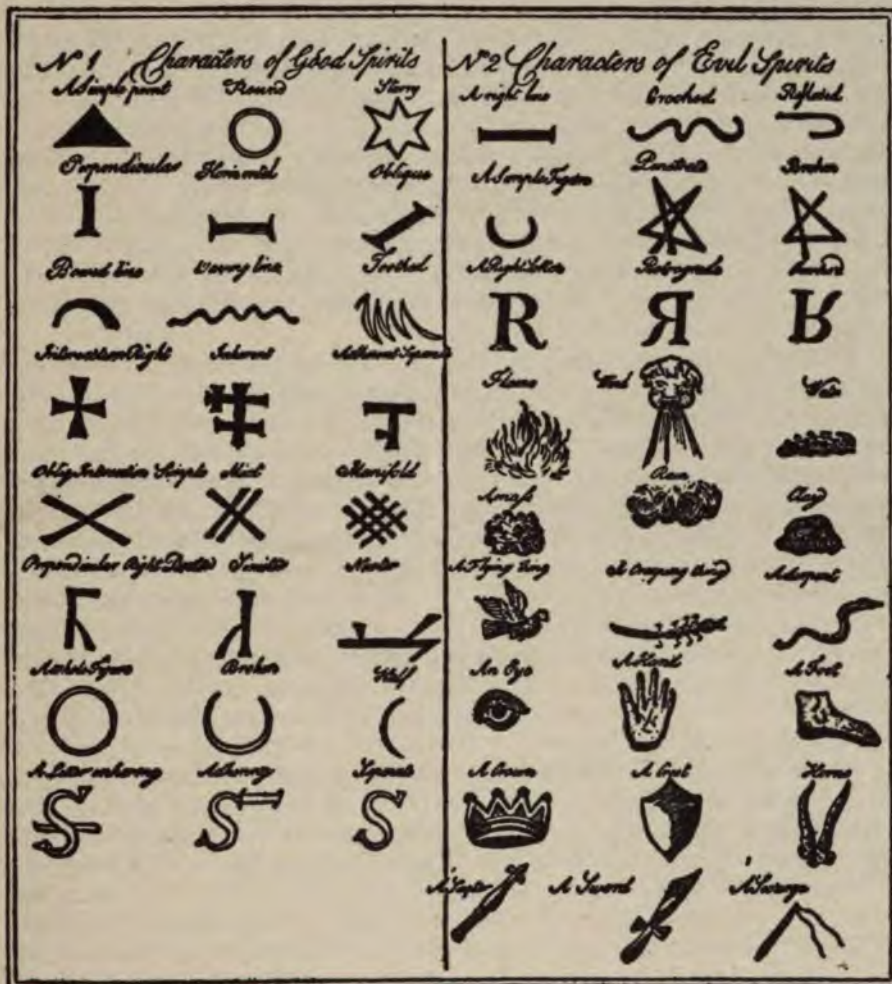 Nº 1 Characters of Good Spirits
A Simple point Round Starry
Perpendicular Horizontal Oblique
Bowed line Wavy line Toothed
Intersection Right Inherent Adherent Separate
Obliq Intersection Simple Mixt Manifold
Perpendicular Right Dexter Sinister Neuter
A whole Figure Broken Half
A Letter inhering Adhering Separate
Nº 2 Characters of Evil Spirits
A right line Crooked Reflexed
A Simple Figure Penetrate Broken
A Right Letter Retrograde
R Я
Flame Wind
A mass Rain Clay
A Flying thing A Creeping thing A Serpent
An Eye A Hand A Foot
A Crown A Crest Horns
A Scepter A Sword A Scourge